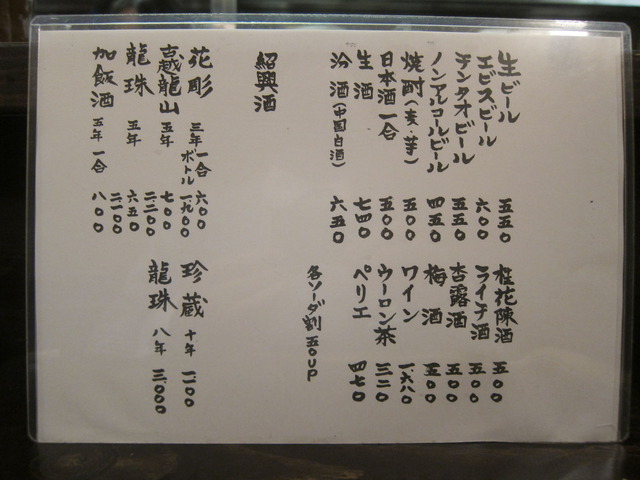 生ビール 五五〇
エビスビール 六〇〇
チンタオビール 五五〇
ノンアルコールビール 四五〇
焼酎(麦・芋) 五〇〇
日本酒一合 五〇〇
生酒 七四〇
汾酒(中国白酒) 六五〇
桂花陳酒 五〇〇
ライチ酒 五〇〇
杏露酒 五〇〇
梅酒 五〇〇
ワイン 一、六八〇
ウーロン茶 三二〇
ペリエ 四七〇
各ソーダ割 五〇UP
紹興酒
花彫 三年 一合 六〇〇
ボトル 一、九〇〇
古越龍山 五年 七〇〇
二、二〇〇
龍珠 五年 六五〇
二、一〇〇
加飯酒 五年 一合 八〇〇
珍蔵 十年
龍珠 八年 三、〇〇〇